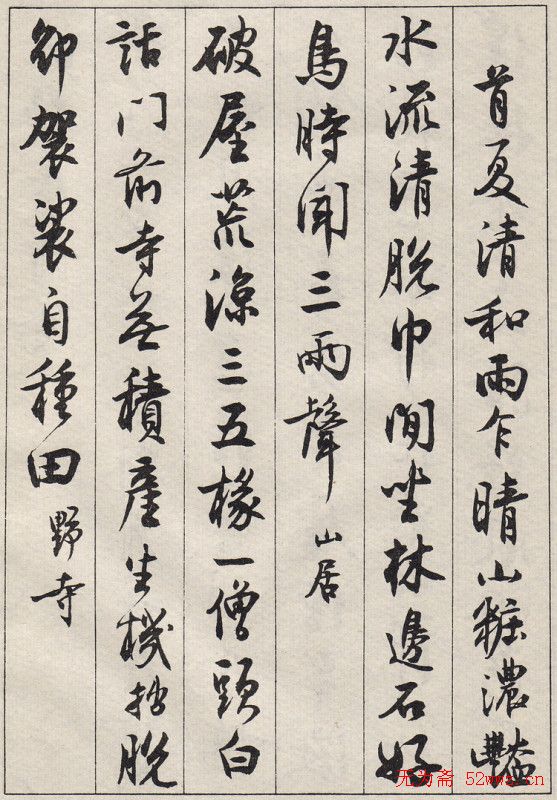 首夏清和雨乍晴山粧濃豔
水流清脫巾閒坐林邊石好
鳥時聞三兩聲 山居
破屋荒涼三五椽一僧頭白
話門前寺無積產生機拙脫
卻袈裟自種田 野寺
无为斋 52wwz.cn